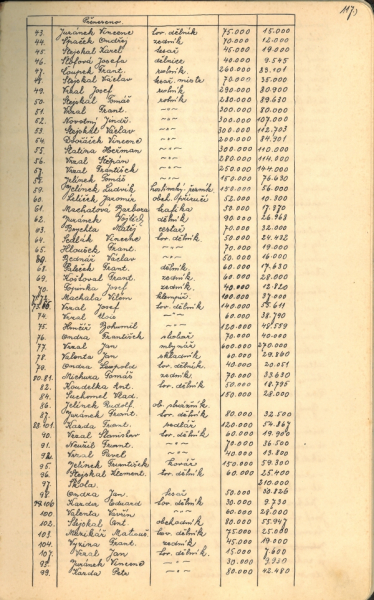 117)
Přeneseno:
43. Juránek Vincenc tov. dělník 75.000 15.000
44. Špaček Ondřej zedník 70.000 12.000
45. Stejskal Karel tesař 45.000 19.000
46. Josefa dělnice 40.000 9.545
47. Coupek Frant. rolník 260.000 83.101
Stejskal Václav 70.000 35.000
49. Vrbal Josef rolník 290.000 80.900
50. Stejskal Tomáš rolník 280.000 89.630
51. Vrbal Frant. -"- 300.000 80.000
52. Novotný Jindř. -"- 300.000 107.000
53. Stejskal Václav -"- 300.000 112.703
54. Dvořáček Vincenc -"- 200.000 84.901
55. Slatina Heřman -"- 300.000 110.000
56. Vrzal Štěpán -"- 280.000 114.000
57. Vrzal František -"- 250.000 144.000
Jelínek Tomáš -"- 150.000 76.630
59. Jelínek Ludvík 150.000 56.000
60. Jaromír 52.000 10.300
61. Machalová Barbora trafika 50.000 17.870
62. Juránek Vojtěch dělník 90.000 26.968
63. Matěj cestář 70.000 32.000
64. Sedlák Vincenc tov. dělník 50.000 24.432
65. Hloušek Frant. -"- 70.000 19.000
Bednář Václav -"- 50.000 16.000
68. Frant. dělník 60.000 17.630
69. Košťoval Frant. zedník 60.000 28.000
70. Josef. zedník. 40.000 12.820
Machala Vilém 100.000 37.000
Vrzal Josef tov. dělník 140.000
74. Vrzal Alois -"- 60.000 38.790
75. Bohumil -"- 120.000 48.559
76. Ondra František stolař 70.000 40.000
77. Vrzal Jan mlynář 600.000 270.000
78. Valenta Jan skladník 60.000 29.860
79. Ondra Leopold tov. dělník 40.000 20.051
80.81. Tomáš zedník 70.000 33.630
82. Koudelka Ant. tov. dělník 50.000 18.795
84. Suchomel Vlad. 150.000 28.000
86. Jelínek Rudolf.
87. Juránek Frant. tov. dělník 80.000 32.500
Karda Frant. sedlář 120.000 54.867
90. Vrzal Stanislav tov. dělník 60.000 19.900
91. Neužil Frant. -"- 70.000 36.500
92. Vrzal Pavel -"- 40.000 13.800
95. Jelínek František kovář 150.000 59.300
96. Stejskal Klement. tov. dělník 60.000 25.400
97. Škola 210.000
98. Ondra Jan tesař 50.000 10.826
Karda Eduard tov. dělník 30.000 9.730
100. Valenta Vavřín -"- 60.000 28.000
102. Stejskal Ant. obchodník 80.000 55.947
103. Matouš tov. dělník 75.000 25.000
104. Vyzina Frant. zedník 45.000 19.000
107. Vrzal Jan tov. dělník. 15.000 7.600
Juránek Vincenc -"- 30.000
99. Karda Petr -"- 80.000 42.480